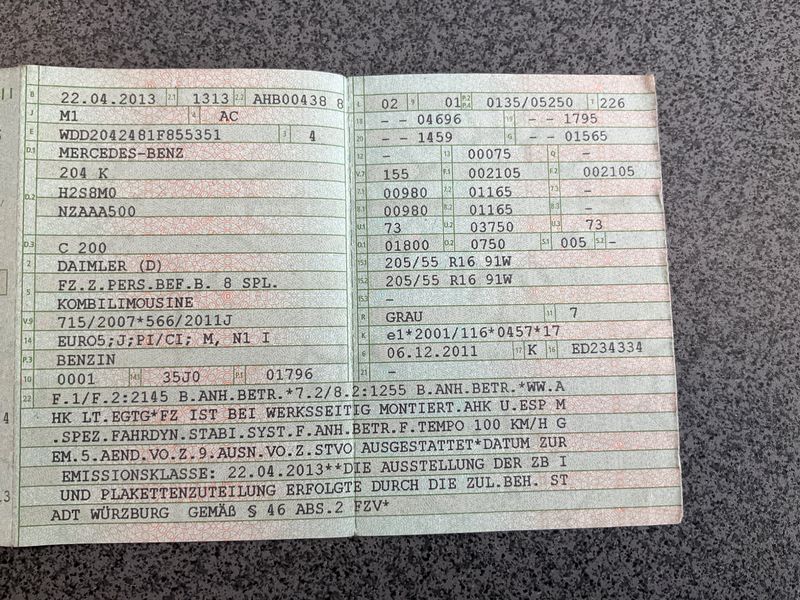 B 22.04.2013 2.1 1313 2.2 AHB00438 8
J M1 4 AC
E WDD2042481F855351 3 4
D.1 MERCEDES-BENZ
204 K
D.2 H2S8M0
NZAAA500
D.3 C 200
2 DAIMLER (D)
5 FZ.Z.PERS.BEF.B. 8 SPL.
KOMBILIMOUSINE
V.9 715/2007*566/2011J
14 EURO5;J;PI/CI; M, N1 I
P.3 BENZIN
10 0001 14.1 35J0 P.1 01796
L 02 9 01 P.2 P.4 0135/05250 T 226
18 - - 04696 19 - - 1795
20 - - 1459 G - - 01565
12 - 13 00075 Q -
V.7 155 F.1 002105 F.2 002105
7.1 00980 7.2 01165 7.3 -
8.1 00980 8.2 01165 8.3 -
U.1 73 U.2 03750 U.3 73
O.1 01800 O.2 0750 S.1 005 S.2 -
15.1 205/55 R16 91W
15.2 205/55 R16 91W
15.3 -
R GRAU 11 7
K e1*2001/116*0457*17
6 06.12.2011 17 K 16 ED234334
21 -
22 F.1/F.2:2145 B.ANH.BETR.*7.2/8.2:1255 B.ANH.BETR.*WW.A
HK LT.EGTG*FZ IST BEI WERKSSEITIG MONTIERT.AHK U.ESP M
.SPEZ.FAHRDYN.STABI.SYST.F.ANH.BETR.F.TEMPO 100 KM/H G
EM.5.AEND.VO.Z.9.AUSN.VO.Z.STVO AUSGESTATTET*DATUM ZUR
EMISSIONSKLASSE: 22.04.2013**DIE AUSSTELLUNG DER ZB I
UND PLAKETTENZUTEILUNG ERFOLGTE DURCH DIE ZUL.BEH. ST
ADT WÜRZBURG GEMÄß § 46 ABS.2 FZV*